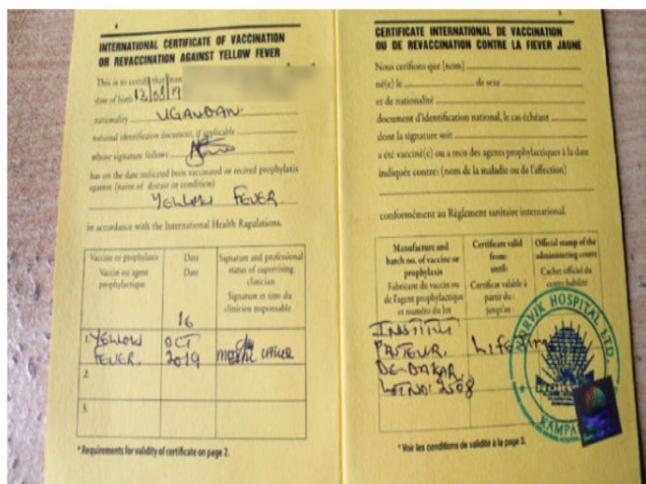 4
INTERNATIONAL CERTIFICATE OF VACCINATION
OR REVACCINATION AGAINST YELLOW FEVER
This is to certify that [name]
date of birth 12/08/19
nationality UGANDAN
national identification document, if applicable
whose signature follows
has on the date indicated been vaccinated or recived prophylaxis
against: (name of disease or condition)
YELLOW FEVER
in accordance with the International Health Ragulations.
Vaccine or prophylaxis
Vaccin ou agent
prophylactique
Date
Date
Signature and professional
status of supervising
clinician
Signature et titre du
clinicien responsable
1. YELLOW
FEVER.
16
OCT
2019
MEDICAL OFFICER
2.
3.
* Requirements for validity of certificate on page 2.
5
CERTIFICATE INTERNATIONAL DE VACCINATION
OU DE REVACCINATION CONTRE LA FIEVER JAUNE
Nous certifions que [nom]
né(e) le de sexe
et de nationalité
document d'identification national, le cas échéant
dont la signature suit
a été vacciné(e) ou a reçu des agents prophylactiques à la date
indiquée contre: (nom de la maladie ou de l'affection)
conformément au Règlement sanitaire international.
Manufacture and
batch no. of vaccine or
prophylaxis
Fabricant du vaccin ou
de l'agent prophylactique
et numéro du lot
Certificate valid
from:
until:
Certificat valable à
partir du:
jusqu'au:
Official stamp of the
administering centre
Cachet officiel du
centre habilité
INSTITUT
PASTEUR
DE DAKAR
LOT NO: 2508
LIFE TIME
NORVIK HOSPITAL LTD
KAMPALA
* Voir les conditions de validité à la page 3.